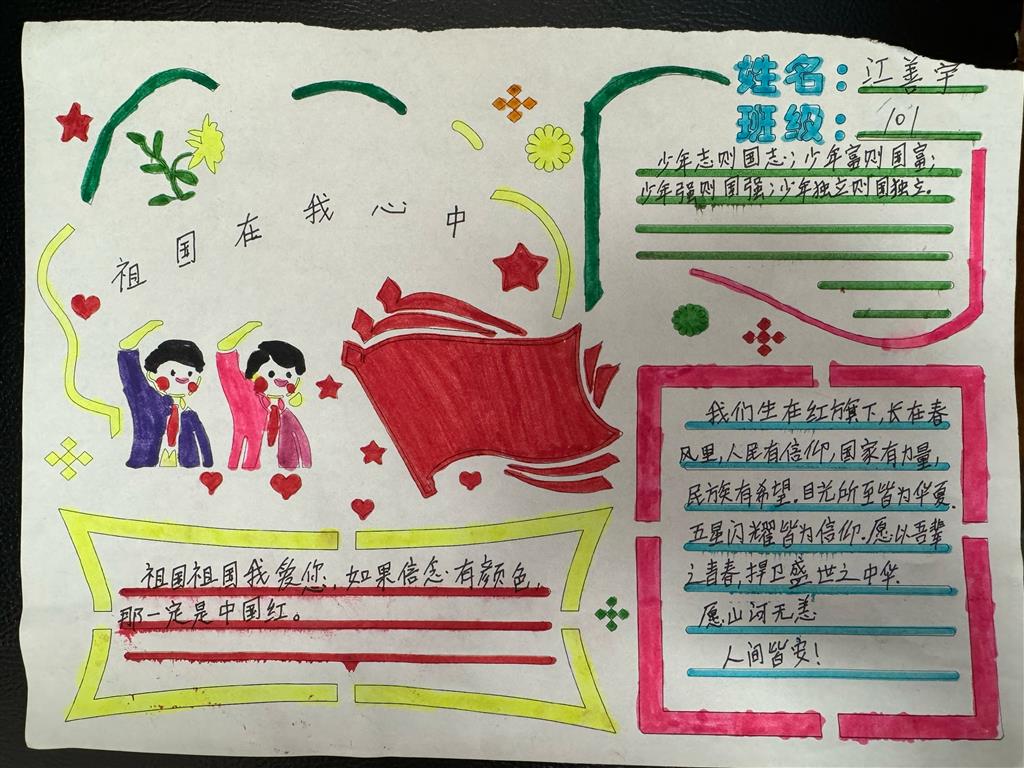 姓名：江善宇
班级：101
祖国在我心中
少年志则国志；少年富则国富；
少年强则国强；少年独立则国独立。
我们生在红旗下，长在春
风里，人民有信仰，国家有力量，
民族有希望。目光所至皆为华夏
五星闪耀皆为信仰。愿以吾辈
之青春，捍卫盛世之中华
愿山河无恙
人间皆安！
祖国祖国我爱您，如果信念有颜色，
那一定是中国红。